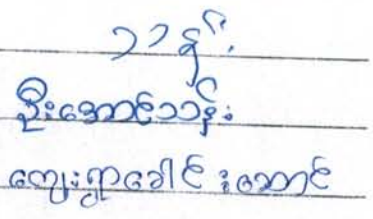 သန့်
ဦးအောင်သန်း
ကျေးရွာခေါင်းဆောင်